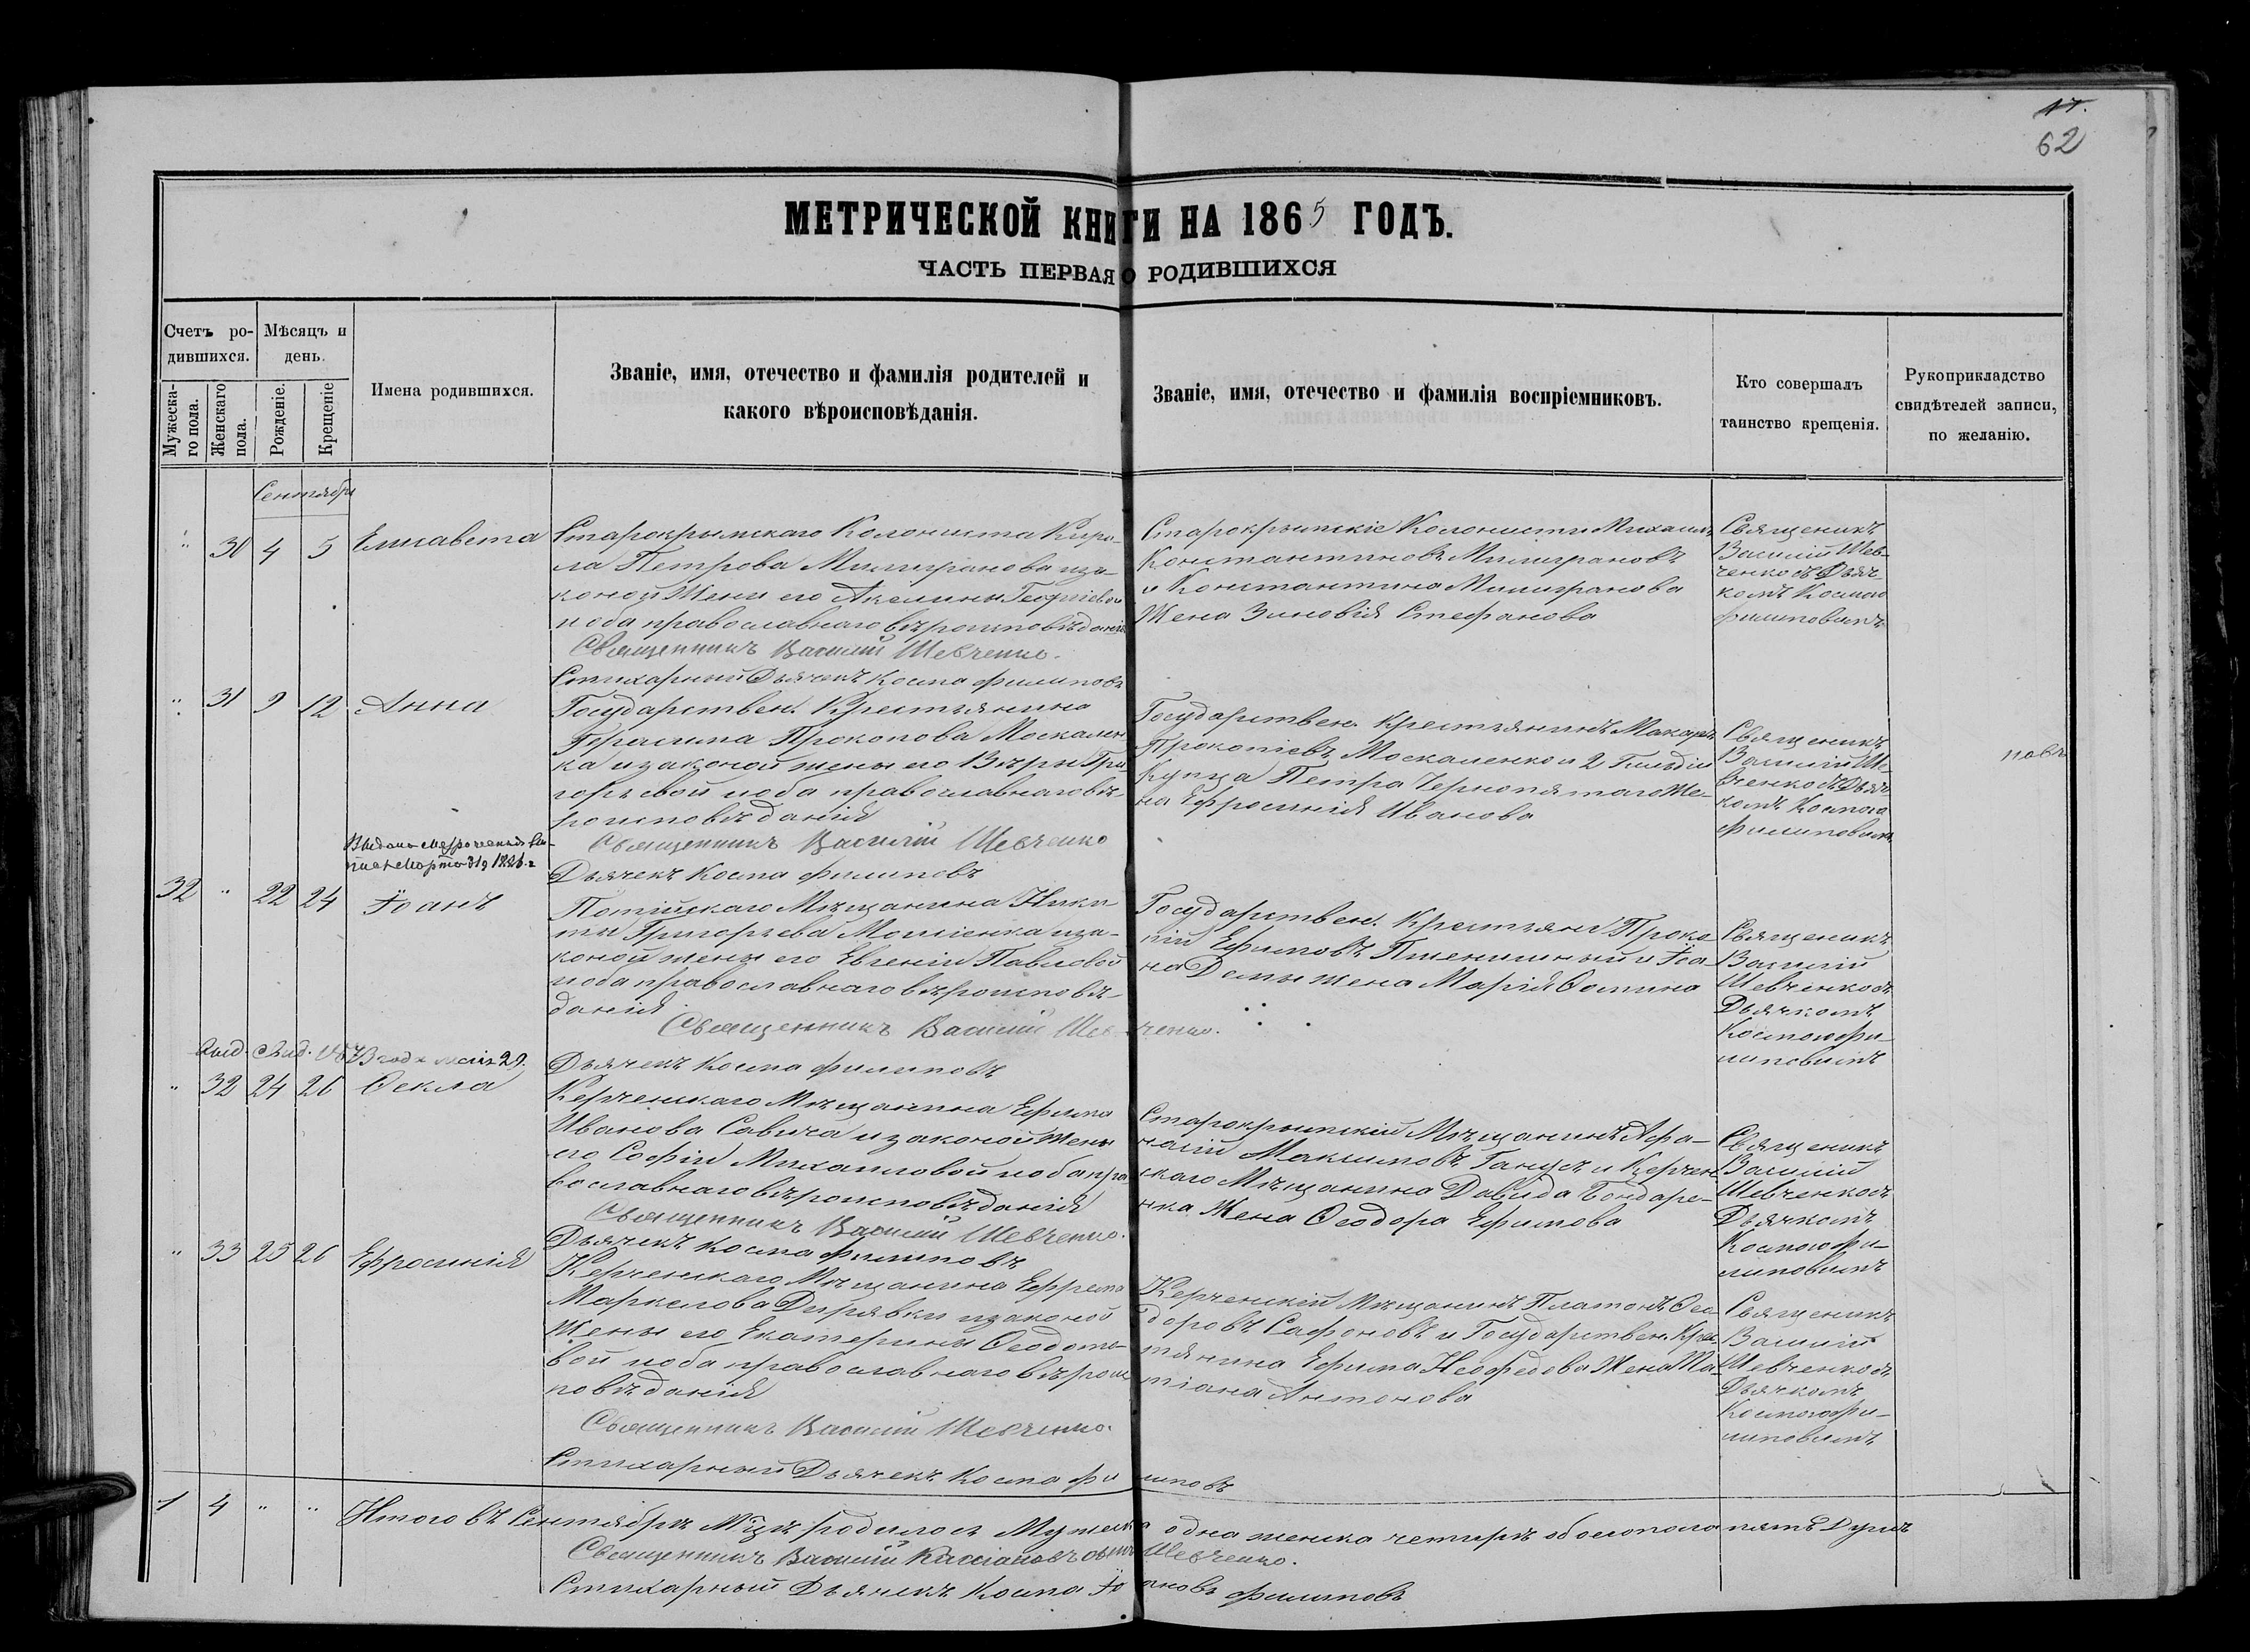 17.
62
МЕТРИЧЕСКОЙ КНИГИ НА 1865 ГОДЪ.
ЧАСТЬ ПЕРВАЯ О РОДИВШИХСЯ
Счетъ ро-
дившихся.
Мѣсяцъ и
день.
Мужеска-
го пола.
Женскаго
пола.
Рожденіе.
Крещеніе
Имена родившихся.
Званіе, имя, отечество и фамилія родителей и
какого вѣроисповѣданія.
Званіе, имя, отечество и фамилія воспріемниковъ.
Кто совершалъ
таинство крещенія.
Рукоприкладство
свидѣтелей записи,
по желанію.
Сентябрь
" 30 4 5 Елисавета
Старокрымскаго Колониста Кири-
ла Петрова Милигранова иза-
коной Жены его Акелины Георгіевой
иоба православнаго вѣроисповѣданія
Священникъ Василій Шевченко.
Стихарный Дьячекъ Косма Филиповъ
Старокрымскіе Колонисты Михаилъ
Константиновъ Милиграновъ
и Константина Милигранова
Жена Зиновія Стефанова
Священикъ
Василій Шев-
ченко съ Дьяч-
комъ Космою
Филиповымъ
" 31 9 12 Анна
Государствен. Крестьянина
Герасима Прокопова Москален
ка изаконой жены его Вѣры Гри-
горьевой иоба православнаго вѣ-
роисповѣданія
Священникъ Василій Шевченко
Дьячекъ Косма Филиповъ
Государствен. Крестьянинъ Макаръ
Прокопіевъ Москаленко и 2 Гильдіи
Купца Петра Чернопятаго Же-
на Ефросинія Иванова
Священикъ
Василій Ше-
вченко съ Дьяч-
комъ Космою
Филиповымъ
новъ
32 " 22 24 Іоанъ
Потійскаго Мѣщанина Ники
ты Григорьева Мосіенка иза-
коной жены его Евгеніи Павловой
иоба православнаго вѣроисповѣ-
данія
Священникъ Василій Шевченко.
Дьячекъ Косма Филиповъ
Государствен. Крестьяни Проко
пій Ефимовъ Пшеничный и Іоа-
на Демы жена Марія Фомина
Священикъ
Василій
Шевченко съ
Дьячкомъ
Космою Фи-
липовымъ
" 32 24 26 Ѳекла
Керченскаго Мѣщанина Ефима
Иванова Савича изаконой Жены
его Софіи Михаиловой иоба пра-
вославнаго вѣроисповѣданія
Священникъ Василій Шевченко.
Дьячекъ Косма Филиповъ
Старокрымскій Мѣщанинъ Афа-
насій Максимовъ Ганусъ и Керчен
скаго Мѣщанина Давида Бондаре-
нка Жена Ѳеодора Ефимова
Священикъ
Василій
Шевченко съ
Дьячкомъ
Космою Фи-
липовымъ
" 33 25 26 Ефросинія
Керченскаго Мѣщанина Ефрема
Маркелова Дырявки изаконой
Жены его Екатерины Ѳеодото-
вой иоба православнаго вѣроис
повѣданія
Священникъ Василій Шевченко.
Стихарный Дьячекъ Косма Филиповъ
Керченскій Мѣщанинъ Платонъ Ѳео
доровъ Сафоновъ и Государствен. Крес
тянина Ефима Неофедова Жена Та-
тіана Антонова
Священикъ
Василій
Шевченко съ
Дьячкомъ
Космою Фи-
липовымъ
1 4 " " Итого въ Сентябрѣ Мцѣ родилось Мужеска одна женска четыре обоего пола пять Душъ
Священникъ Василій Шевченко.
Стихарный Дьячекъ Косма Іоановъ Филиповъ